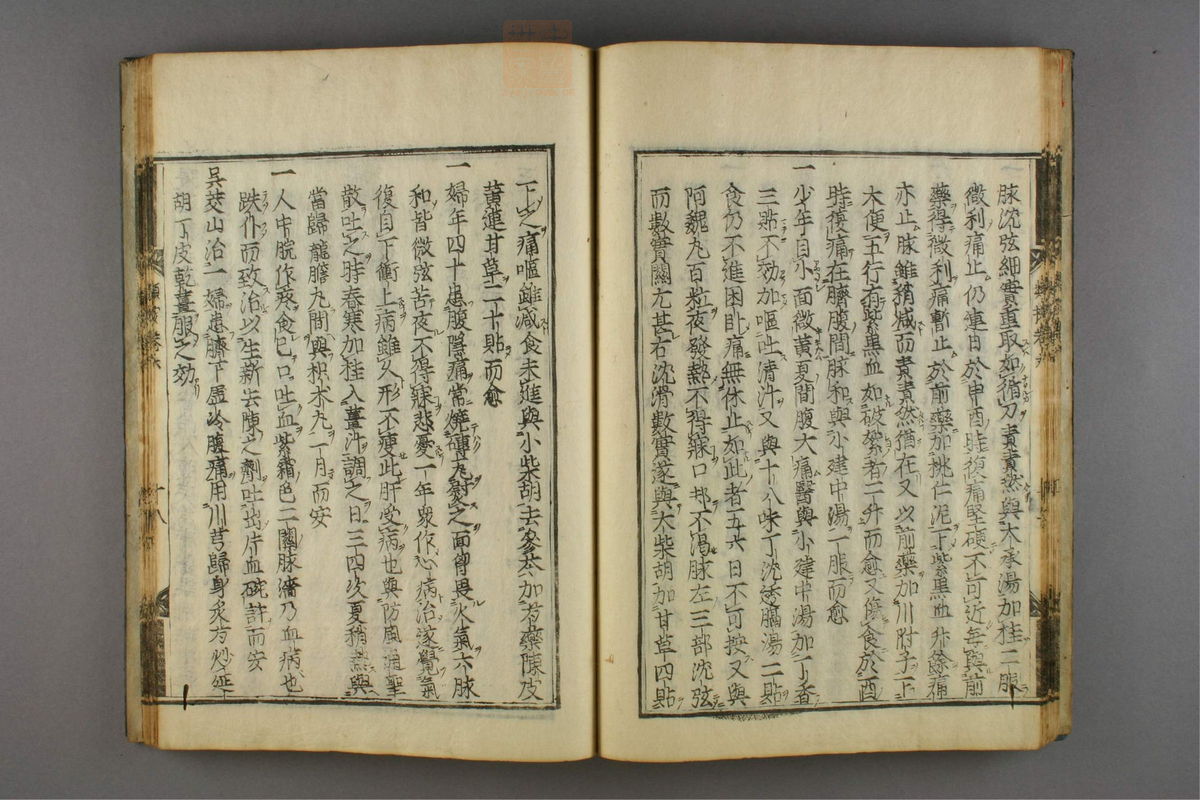 脉沈弦細實重取如循刀責責然與大承湯加桂二服
微利痛止仍連日於申酉時復痛堅硬不可近每與前
藥得微利痛暫止於前藥加桃仁泥下紫黑血升餘痛
亦止脉雖稍减而責責然猶在又以前藥加川附子下
大便五行有紫黑血如破絮者二升而愈又傷食於酉
時復痛在臍腹間脉和與小建中湯一服而愈
一少年自小面微黄夏間腹大痛醫與小建中湯加丁香
三貼不効加嘔吐清汁又與十八味丁沈透膈湯二貼
食仍不進困卧痛無休止如此者五六日不可按又與
阿魏丸百粒夜發熱不得寐口却不渴脉左三部沈弦
而數實關尤甚右沈滑數實遂與大柴胡加甘草四貼
下之痛嘔雖减食未進與小柴胡去參芩加芍藥陳皮
黄連甘草二十貼而愈
一婦年四十患腹隱痛常燒磚瓦熨之面胷畏火氣六脉
和皆微弦苦夜不得寐悲憂一年衆作心病治遂覺氣
復自下衝上病雖久形不瘦此肝受病也與防風通聖
散吐之時春寒加桂入薑汁調之日三四次夏稍熱與
當歸龍膽丸間與枳术丸一月而安
一人中脘作疼食已口吐血紫霜色二關脉濇乃血病也
跌仆而致治以生新去陳之劑吐出片血碗許而安
吳茭山治一婦患臍下虛冷腹痛用川芎歸身炙芍炒延
胡丁皮乾薑服之効
十八